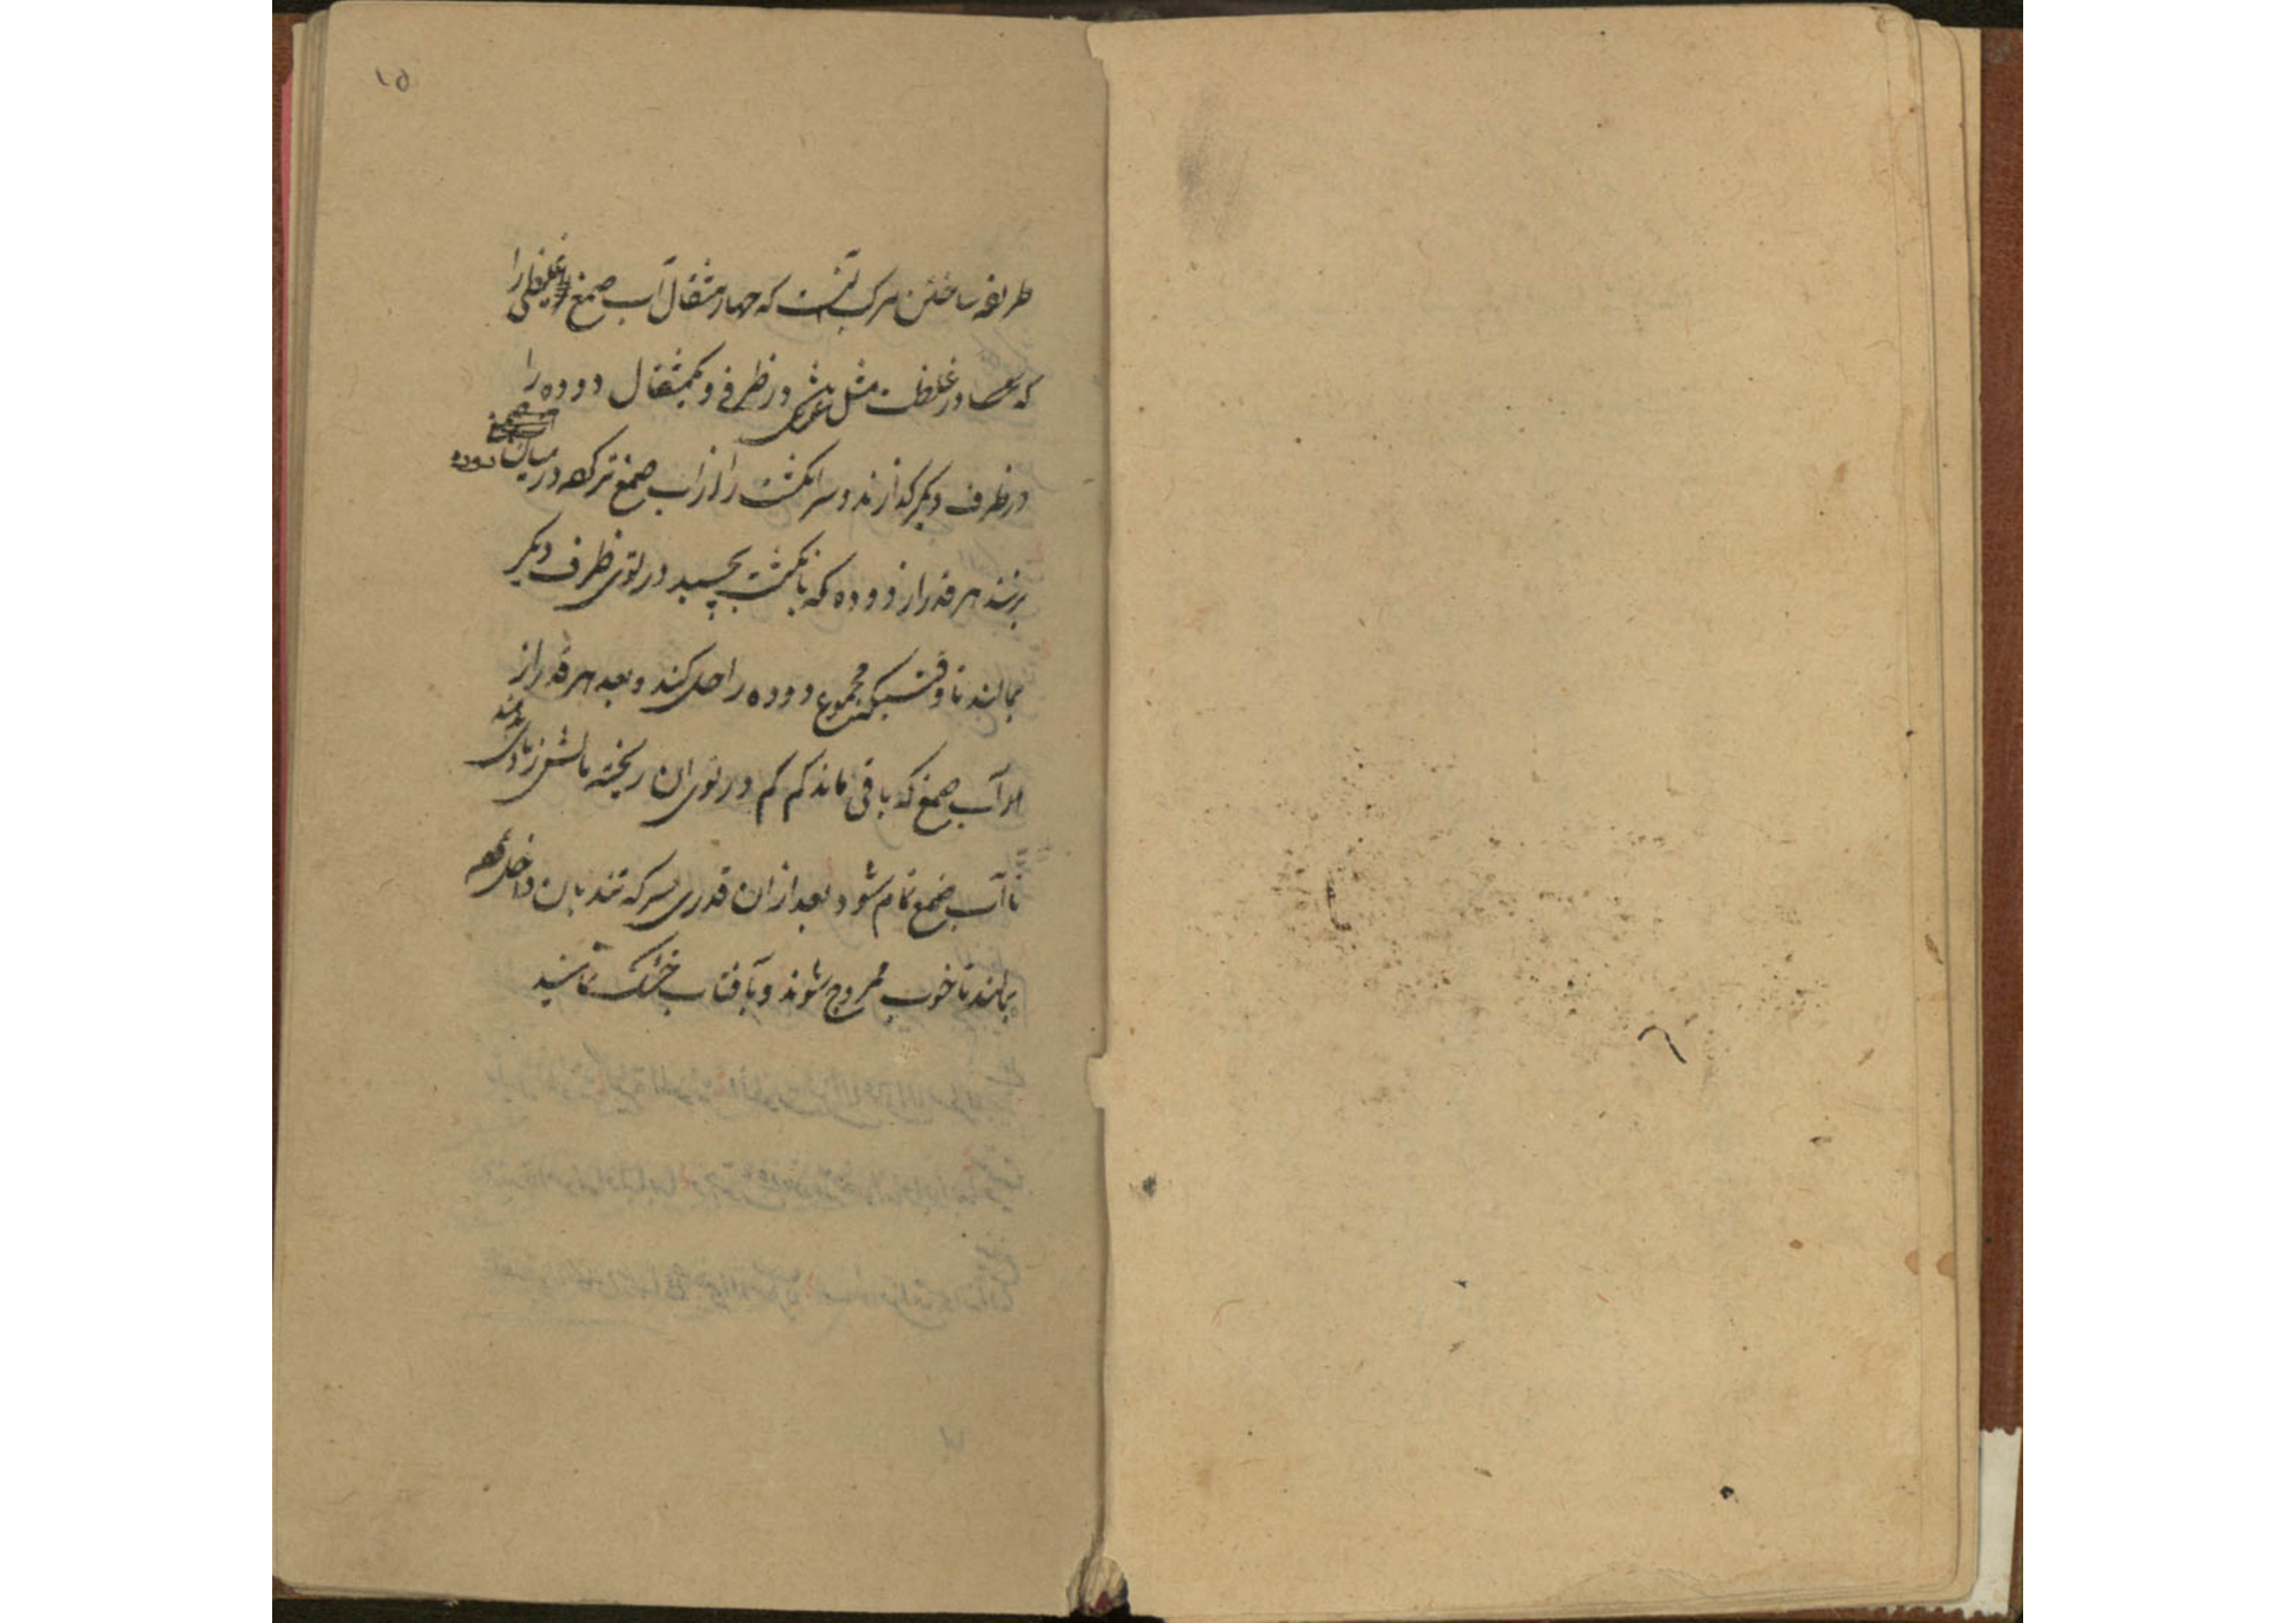 ۱۵
طریقه ساختن مرکب آنست که چهار مثقال آب صمغ غلیظی را
که در غلظت مثل عسل در ظرفی و یکمثقال دوده را
در ظرف دیکر کذارند و سر انکشت را از آب صمغ تر کرده در میان دوده
بزنند هر قدر از دوده که بانکشت بچسبد در توی ظرف دیکر
بمالند تا وقتیکه مجموع دوده را حل کند و بعد هر قدر از
آب صمغ که باقی ماند کم کم در توی ان ریخته مالش زیادی بدهند
تا آب صمغ تمام شود بعد از ان قدری سرکه تند بان داخل کرده
بمالند تا خوب ممزوج شوند و بآفتاب خشک نمایند